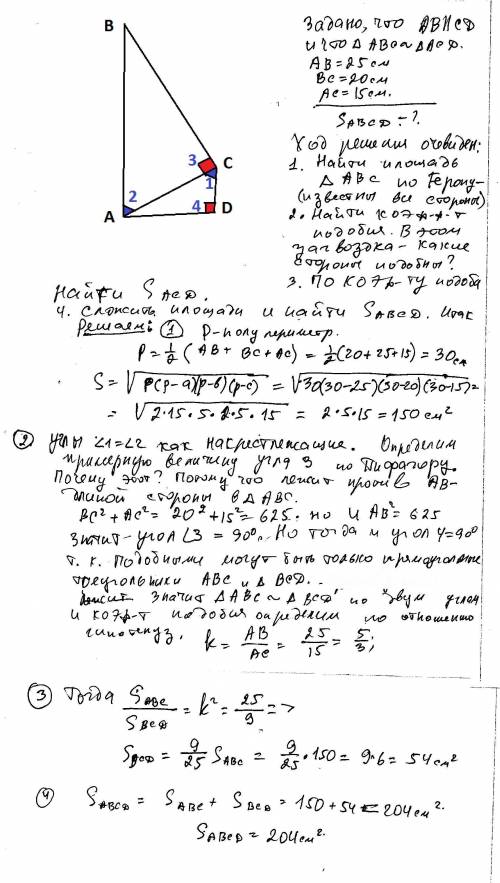 B
3
C
1
2
4
A
D
Задано, что AB∥CD
и что Δ ABC∾ΔACD.
AB=25см
BC=20см
AC=15см.
S ABCD - ?.
Ход решения очевиден:
1. Найти площадь
Δ ABC по Герону-
(известны все стороны)
2. Найти коэф-т
подобия. В этом
загвоздка - какие
стороны подобны?
3. По коэф-ту подоб
найти S ACD.
4. Сложить площади и найти S ABCD. Итак
Решаем: ① P-полупериметр.
P=½(AB+BC+AC)=½(20+25+15)=30см
S=√P(P-a)(P-b)(P-c)=√30(30-25)(30-20)(30-15)=
=√2·15·5·2·5·15 = 2·5·15=150см²
② Углы ∠1=∠2 как накрестлежащие. Определим
примерную величину угла 3 по Пифагору.
Почему этот? Потому что лежит против AB-
длиной стороны в ΔABC.
BC²+AC²=20²+15²=625. но и AB²=625
значит-угол ∠3=90°. Но тогда и угол 4=90°
т.к. подобными могут быть только прямоугольные
треугольники ABC и Δ BCD..
значит ΔABC∾ΔBCD по двум углам
и коэф-т подобия определим по отношению
гипотенуз. k=AB/AC=25/15=5/3;
③ Тогда S ABC/S BCD=k²=25/9=>
S BCD=9/25 S ABC=9/25·150=9·6=54см²
④ S ABCD=S ABC+S BCD=150+54=204см².
S ABCD=204см².